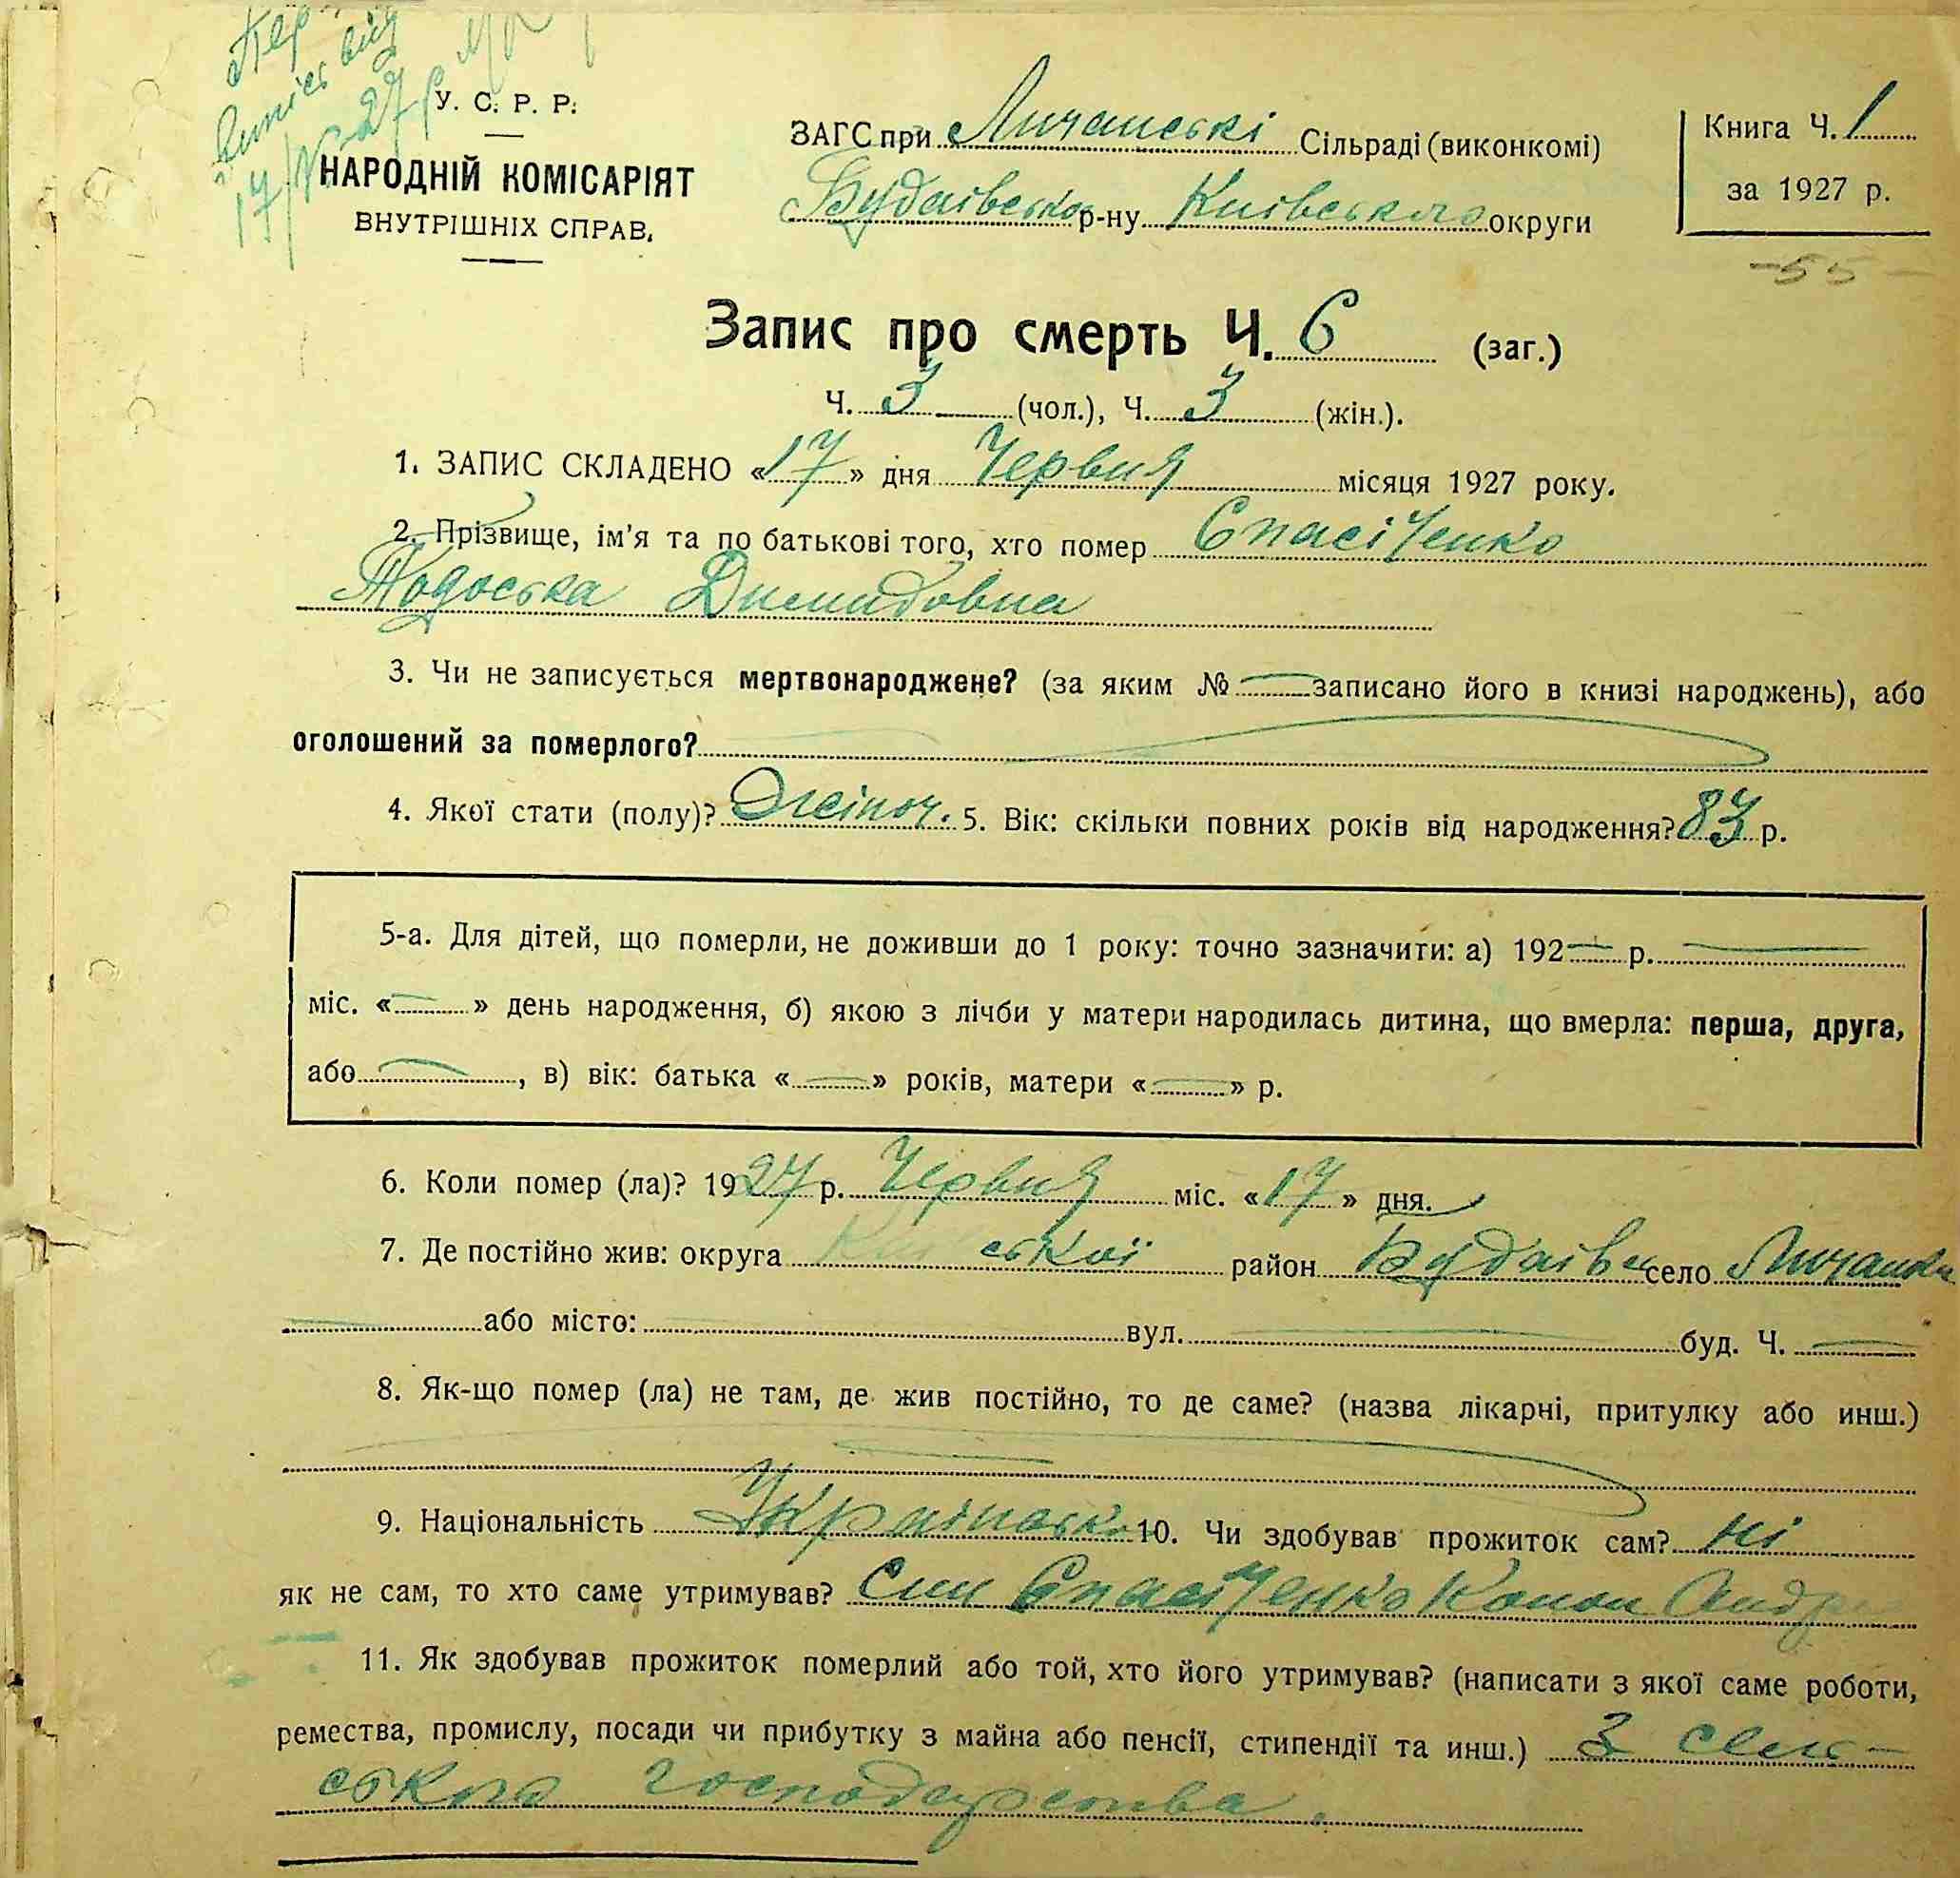 У. С. Р. Р.
НАРОДНІЙ КОМІСАРІЯТ
ВНУТРІШНІХ СПРАВ.
17/V 27
ЗАГС при Личанські Сільраді (виконкомі)
Будаївсько р-ну Київського округи
Книга Ч. 1
за 1927 р.
-55-
Запис про смерть Ч. 6 (заг.)
Ч. 3 (чол.), Ч. 3 (жін.).
1. ЗАПИС СКЛАДЕНО «17» дня Червня місяця 1927 року.
2. Прізвище, ім'я та по батькові того, хто помер Спасіченко
Тодоська Димидовна
3. Чи не записується мертвонароджене? (за яким № записано його в книзі народжень), або
оголошений за померлого?
4. Якої стати (полу)? Жіноч. 5. Вік: скільки повних років від народження? 83 р.
5-а. Для дітей, що померли, не доживши до 1 року: точно зазначити: а) 192 р.
міс. « » день народження, б) якою з лічби у матери народилась дитина, що вмерла: перша, друга,
або , в) вік: батька « » років, матери « » р.
6. Коли помер (ла)? 1927 р. Червня міс. «17» дня.
7. Де постійно жив: округа Київської район Будаївс село Личанка
або місто: вул. буд. Ч.
8. Як-що помер (ла) не там, де жив постійно, то де саме? (назва лікарні, притулку або инш.)
9. Національність Українська 10. Чи здобував прожиток сам? Ні
як не сам, то хто саме утримував? Син Спасіченко Конон Андр
11. Як здобував прожиток померлий або той, хто його утримував? (написати з якої саме роботи,
ремества, промислу, посади чи прибутку з майна або пенсії, стипендії та инш.) З сель-
ського господарства.